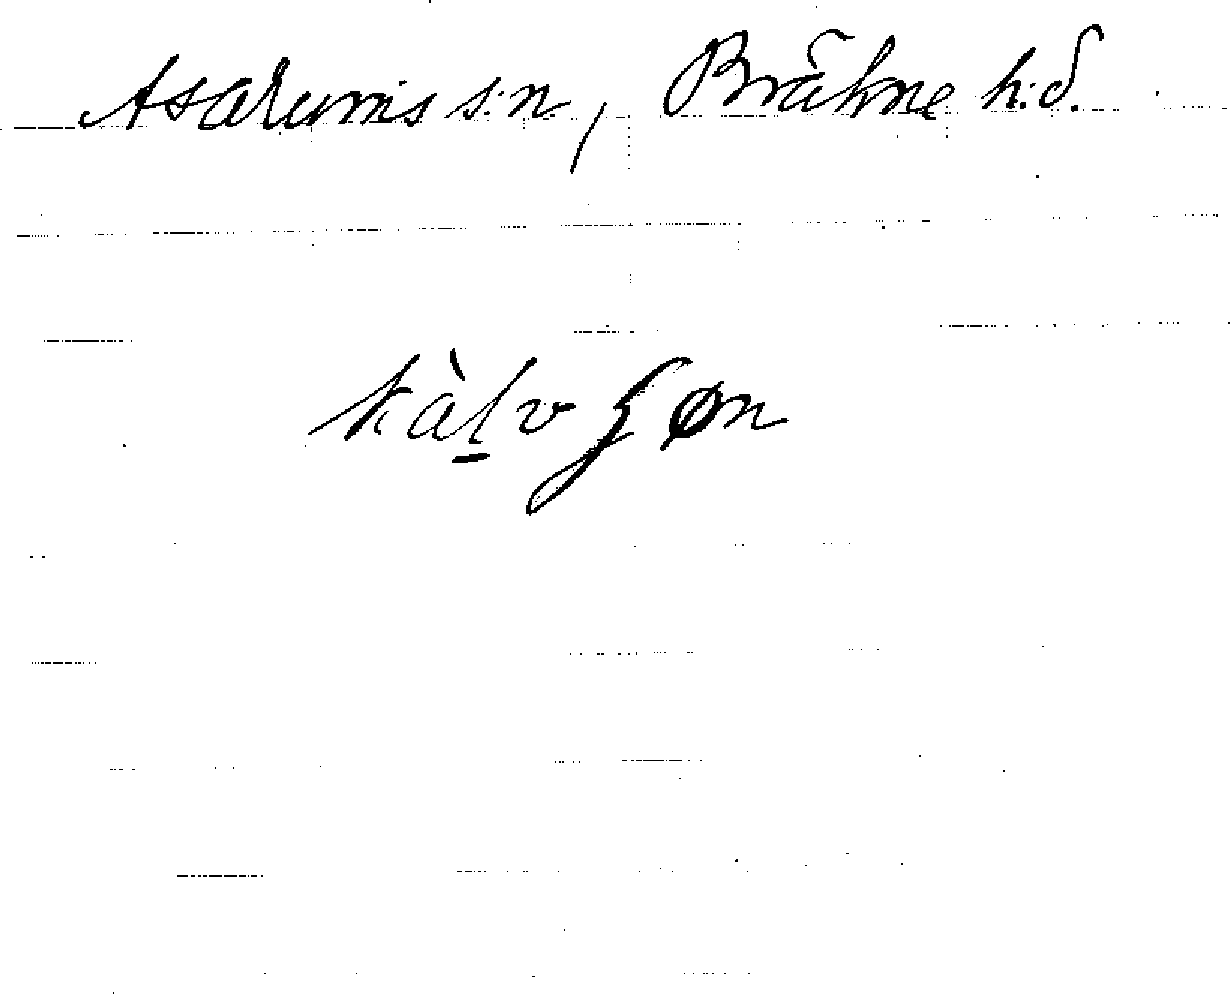 Asarums s:n, Bräkne h:d.
kàl̠vʒøn